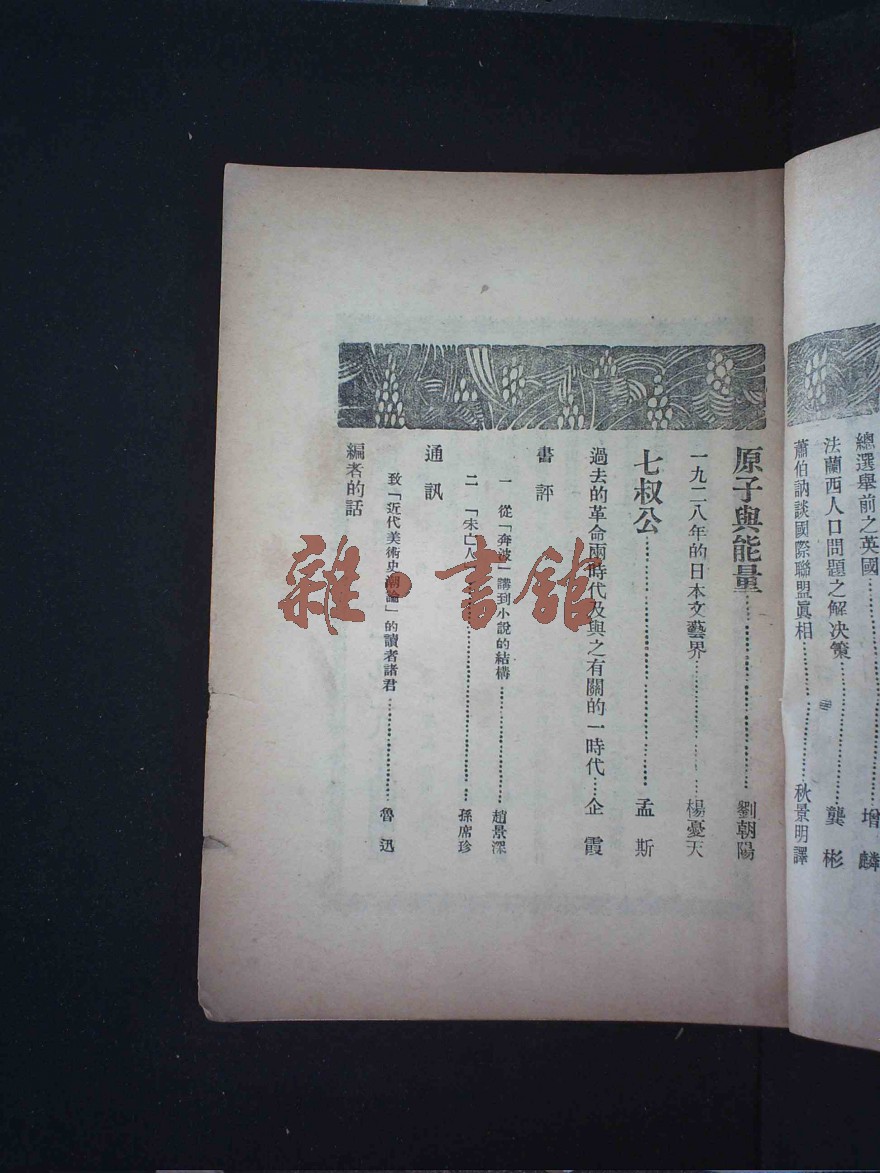 總選舉前之英國……增麟
法蘭西人口問題之解决策……龔彬
蕭伯訥談國際聯盟眞相……秋景明譯
原子與能量……劉朝陽
一九二八年的日本文藝界……楊憂天
七叔公……孟斯
過去的革命兩時代及與之有關的一時代……企霞
書評
一 從「奔波」講到小說的結構……趙景深
二 「宋亡人……孫席珍
通訊
致「近代美術史潮論」的讀者諸君……魯迅
編者的話
雜·書館